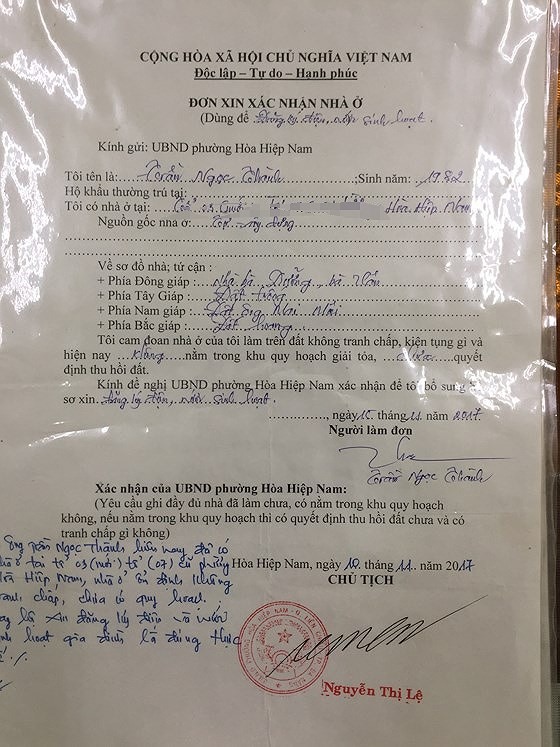 CỘNG HÒA XÃ HỘI CHỦ NGHĨA VIỆT NAM
Độc lập – Tự do – Hạnh phúc
ĐƠN XIN XÁC NHẬN NHÀ Ở
(Dùng để Đăng ký điện, nước sinh hoạt.
Kính gửi: UBND phường Hòa Hiệp Nam
Tôi tên là: Trần Ngọc Thành ;Sinh năm: 1982
Hộ khẩu thường trú tại:
Tôi có nhà ở tại: Hòa Hiệp Nam
Nguồn gốc nha ở:
Về sơ đồ nhà; tứ cận :
+ Phía Đông giáp : nhà bà
+ Phía Tây Giáp : Đất trống
+ Phía Nam giáp : Đất ông Mai
+ Phía Bắc giáp : Đất hoang
Tôi cam đoan nhà ở của tôi làm trên đất không tranh chấp, kiện tụng gì và
hiện nay không nằm trong khu quy hoạch giải tỏa, chưa quyết
định thu hồi đất.
Kính đề nghị UBND phường Hòa Hiệp Nam xác nhận để tôi bổ sung
sơ xin. Đăng ký điện, nước sinh hoạt.
, ngày 10. tháng .11. năm 2017.
Người làm đơn
Trần Ngọc Thành
Xác nhận của UBND phường Hòa Hiệp Nam:
(Yêu cầu ghi đầy đủ nhà đã làm chưa, có nằm trong khu quy hoạch
không, nếu nằm trong khu quy hoạch thì có quyết định thu hồi đất chưa và có
tranh chấp gì không)
Ông Trần Ngọc Thành hiện nay đã có
nhà ở tại tổ 03 (mới) tổ (07) cũ phường
Hòa Hiệp Nam, nhà ở ổn định không
tranh chấp, chưa có quy hoạch.
xin đăng ký điện và nước
sinh hoạt gia đình là đúng thực
Hòa Hiệp Nam, ngày 10. tháng .11. năm 2017
CHỦ TỊCH
Nguyễn Thị Lệ